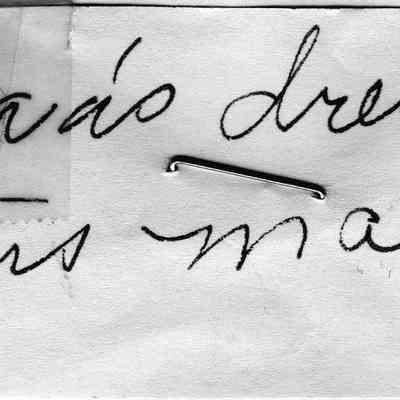 aás dre
rs ma